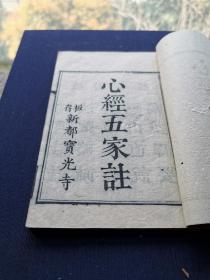 心經五家註
板存新都寶光寺